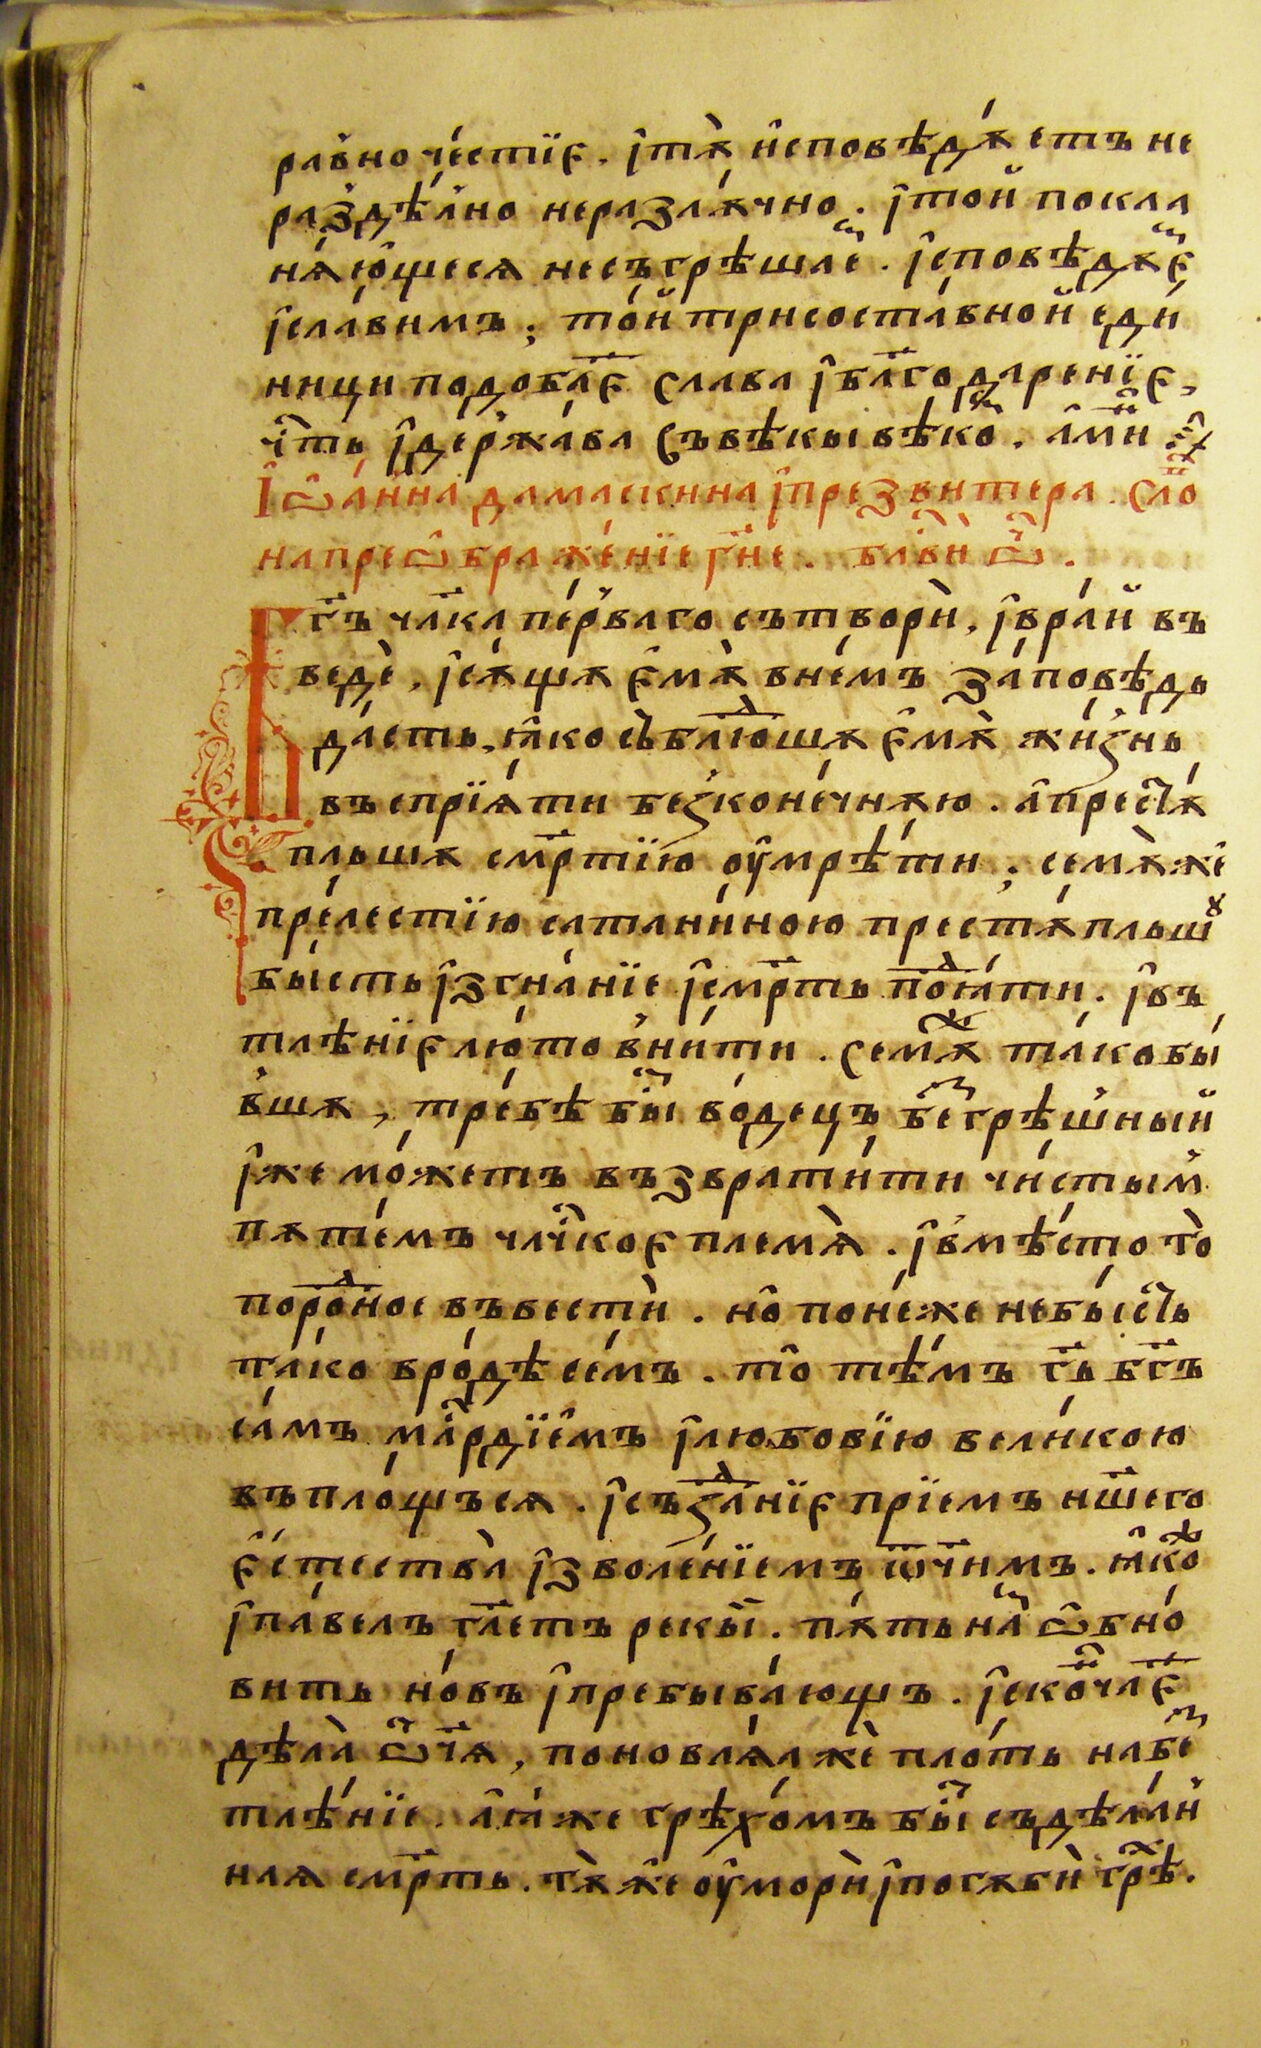 равночестїе. ꙇтѫ̀ исповѣдꙋ́етъ не
раздѣлно неразлꙋ́чно. ꙇтой покла
нѧ́ющесѧ несъгрѣшае. ꙇсповѣджꙋе
ꙇславимъ; той трисоста́вной еди́
ници подоба҇е слава ꙇбл҃годаренїе,
ч҇ть ꙇдержа́ва съвѣкы вѣко. ами
Іѡа́нна дамаскина ꙇпрезвитера. сло
напреѡбраже́нїе гн҃е. бл҃ви ѿ.
Гь҃ чл҃ка пе́рваго сътворѝ, ꙇвра́й въ
ведѐ, ꙇсꙋ́щꙋ емꙋ̀ внемъ за́повѣдь
да́сть, ꙗко съблю́дшꙋ емꙋ̀ жи́знь
въспрїѧ́ти безконе́чнꙋю. апрестꙋ́
пльшꙋ смр҃тїю оумрѣ́ти; семꙋ̀же
пре́лестїю сатани́ною престꙋпльшꙋ
бы́сть ꙇзгна́нїе ꙇсмр҃ть подꙗ́ти. ꙇвъ
тлѣ́нїе лю́то вни́ти. семꙋ̀ж та́ко бы́
вшꙋ, тре́бѣ бы во́децъ безгрѣ́шный
ꙇже мо́жетъ възврати́ти чи́стым
пꙋте́мъ чл҃чкое племѧ̀. ꙇвмѣ́сто то
породное въвестѝ. но поне́же небы́сть
та́ко вро́дѣ семъ. то тѣ́мъ гь҃ бг҃ъ
са́мъ млрдїемъ ꙇлюбовїю вели́кою
въпло́щъсѧ. ꙇсъзданїе прїемъ нш҃его
е́стества̀ ꙇзволе́нїемъ ѿч҃имъ. ꙗкож
ꙇпа́велъ гл҃етъ рекы̀. пꙋ́ть на ѡбно́
вить но́въ ꙇпребыва́ющъ. ꙇскончае
дѣла̀ ѿч҃ѧ, поновлѧ́а же пло́ть набез
тлѣ́нїе. аꙗ́же грѣхо́мъ бы съдѣ́лан
наѧ смр҃ть. тꙋ̀ же оуморѝ ꙇпогꙋбѝ грѣх.